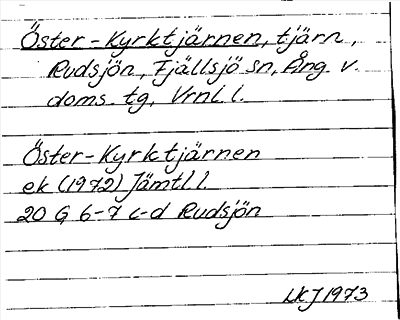 Öster-Kyrktjärnen, tjärn,
Rudsjön, Fjällsjö sn, Ång. v.
doms. tg, Vrnl. l.
Öster-Kyrktjärnen
ek (1972) Jämtl l.
20 G 6-7 c-d Rudsjön
LKJ 1973